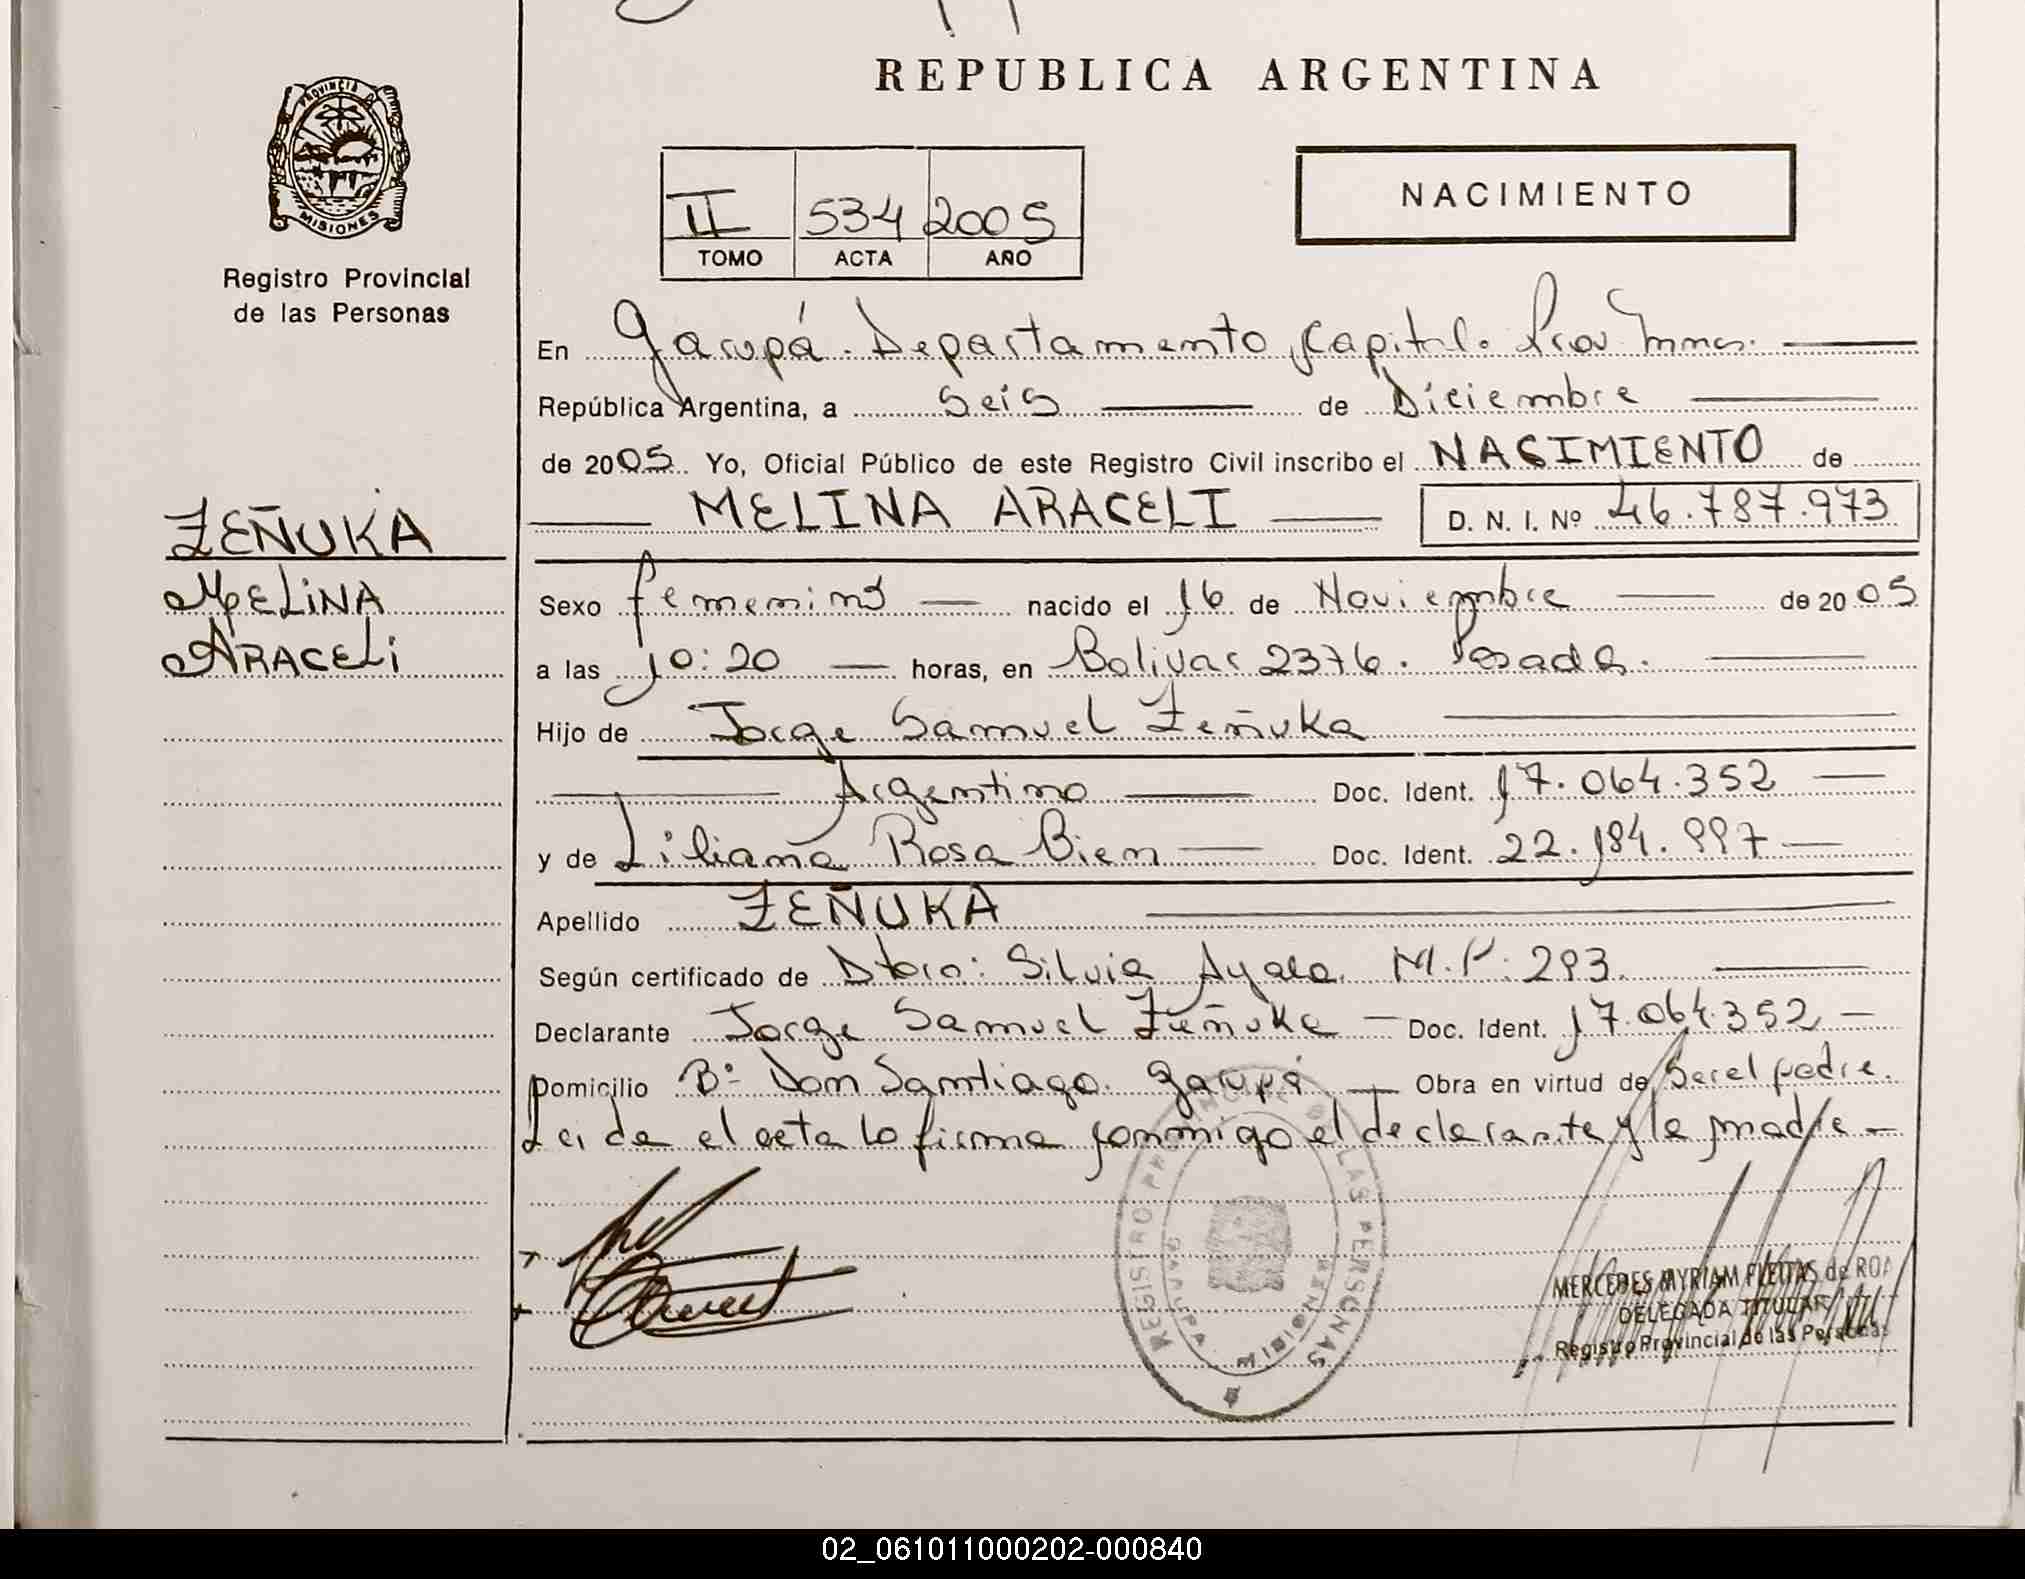 REPUBLICA ARGENTINA
PROVINCIA DE
MISIONES
Registro Provincial
de las Personas
II 534 2005
TOMO ACTA AÑO
NACIMIENTO
En Garupá. Departamento Capital. Prov Mnes.
República Argentina, a seis de Diciembre
de 2005 Yo, Oficial Público de este Registro Civil inscribo el NACIMIENTO de
MELINA ARACELI D. N. I. Nº 46.787.973
ZEÑUKA
MELINA
ARACELI
Sexo femenino nacido el 16 de Noviembre de 2005
a las 10:20 horas, en Bolivar 2376. Posadas.
Hijo de Jorge Samuel Zeñuka
Argentino Doc. Ident. 17.064.352
y de Liliana Rosa Bien Doc. Ident. 22.184.997
Apellido ZEÑUKA
Según certificado de Silvia Ayala. M.P. 293.
Declarante Jorge Samuel Zeñuka Doc. Ident. 17.064.352
Domicilio Bº Don Santiago. Garupá Obra en virtud de ser el padre.
Leida el acta lo firma conmigo el declarante y la madre
REGISTRO PROVINCIAL DE LAS PERSONAS
GARUPA MISIONES
MERCEDES MYRIAM FLEITAS de ROA
DELEGADA TITULAR
Registro Provincial de las Personas
02_061011000202-000840